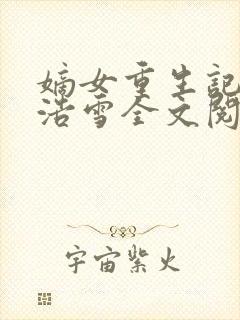 嫡女重生記
浩雪全文閱
宇宙紫火